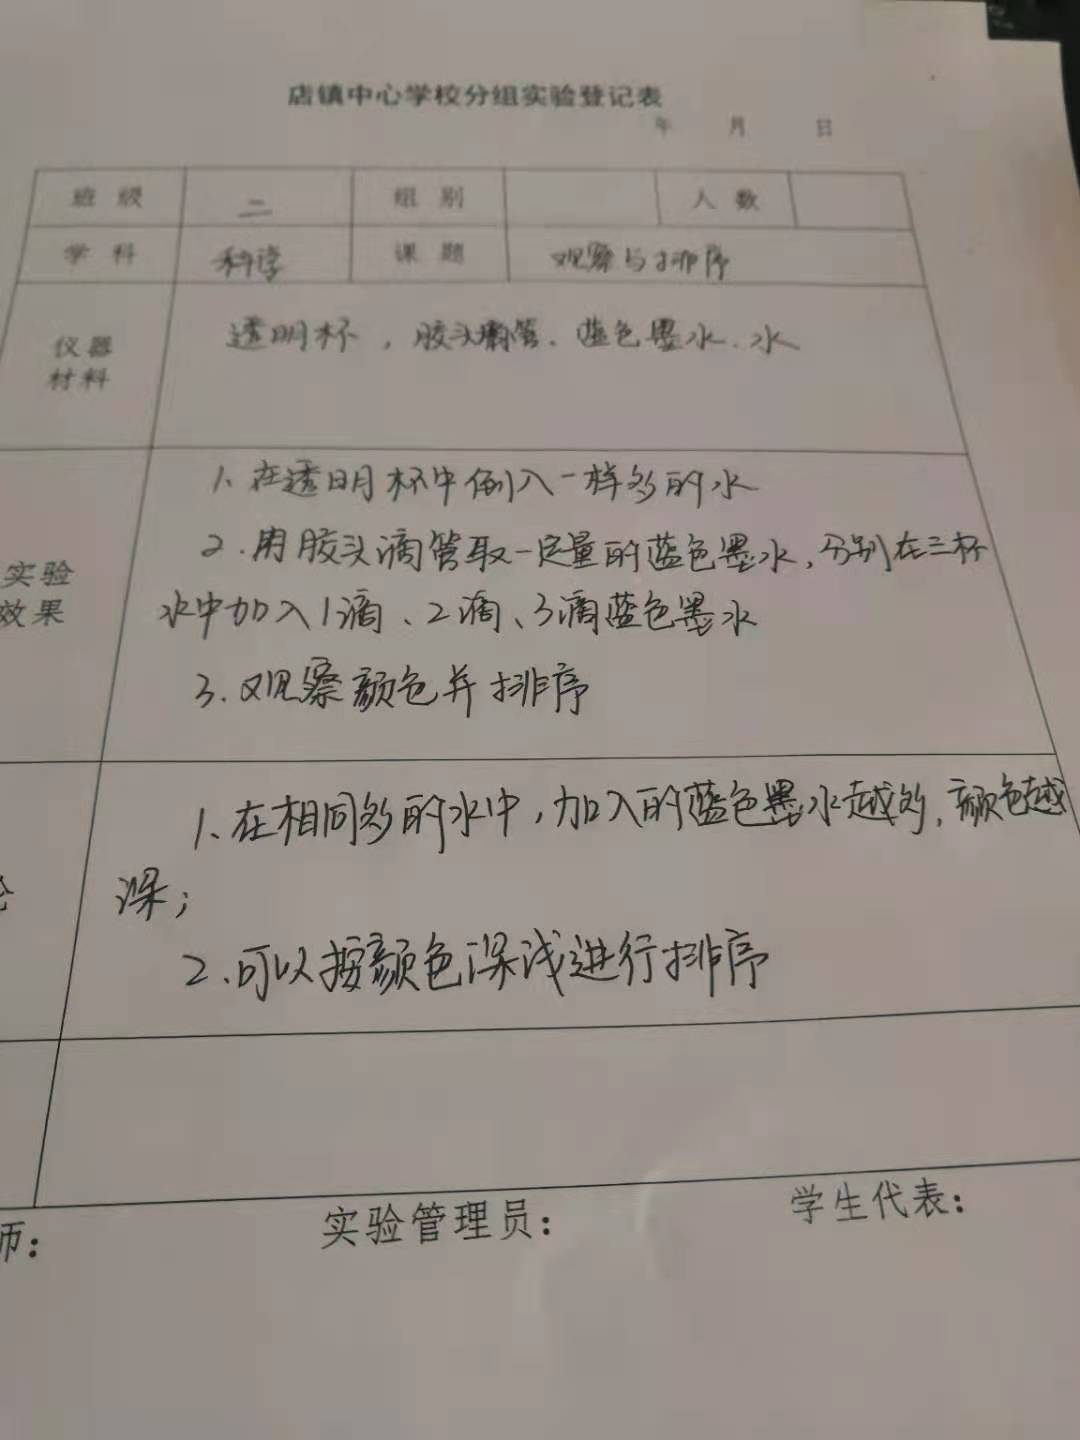 店镇中心学校分组实验登记表
年 月 日
班级 二 组别 人数
学科 科学 课题 观察与排序
仪器
材料
透明杯，胶头滴管、蓝色墨水、水
实验
效果
1、在透明杯中倒入一样多的水
2、用胶头滴管取一定量的蓝色墨水，分别在三杯
水中加入1滴、2滴、3滴蓝色墨水
3、观察颜色并排序
论
1、在相同多的水中，加入的蓝色墨水越多，颜色越
深；
2、可以按颜色深浅进行排序
师：
实验管理员：
学生代表：